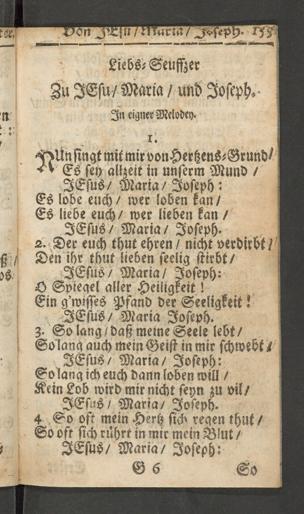 Von JEsu / Maria / Joseph.
Liebs-Seuffzer
Zu JEsu / Maria / und Joseph.
In eigner Melodey.
1.
NUn singt mit mir von Hertzens-Grund /
Es sey allzeit in unserm Mund /
JEsus / Maria / Joseph :
Es lobe euch / wer loben kan /
Es liebe euch / wer lieben kan /
JEsus / Maria / Joseph.
2. Der euch thut ehren / nicht verdirbt /
Den ihr thut lieben seelig stirbt /
JEsus / Maria / Joseph:
O Spiegel aller Heiligkeit !
Ein g'wisses Pfand der Seeligkeit !
JEsus / Maria Joseph.
3. So lang / daß meine Seele lebt /
So lang auch mein Geist in mir schwebt /
JEsus / Maria / Joseph:
So lang ich euch dann loben will /
Kein Lob wird mir nicht seyn zu vil /
JEsus / Maria / Joseph.
4. So oft mein Hertz sich regen thut /
So oft sich rührt in mir mein Blut /
JEsus / Maria / Joseph:
G 6 So